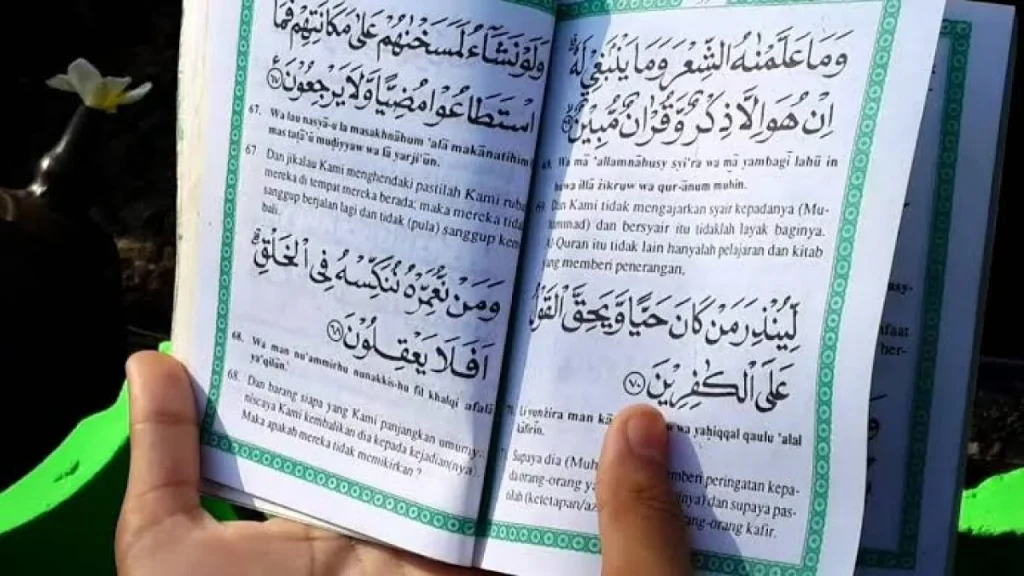 وَلَوْ نَشَاءُ لَمَسَخْنٰهُمْ عَلٰى مَكَانَتِهِمْ فَمَا
اسْتَطَاعُوْا مُضِيًّا وَّلَا يَرْجِعُوْنَ ࣖ ٦٧
67. Wa lau nasyā-u la masakhnāhum 'alā makānatihim
mastaṭā'ū muḍiyyaw wa lā yarji'ūn.
67. Dan jikalau Kami menghendaki pastilah Kami
mereka di tempat mereka berada; maka mereka
sanggup berjalan lagi dan tidak (pula) sanggup
bali.
وَمَنْ نُّعَمِّرْهُ نُنَكِّسْهُ فِى الْخَلْقِۗ
اَفَلَا يَعْقِلُوْنَ ٦٨
68. Wa man nu'ammirhu nunakkis-hu fil khalqi afalā
ya'qilūn.
68. Dan barang siapa yang Kami panjangkan umurnya
niscaya Kami kembalikan dia kepada kejadian(nya).
Maka apakah mereka tidak memikirkan ?
وَمَا عَلَّمْنٰهُ الشِّعْرَ وَمَا يَنْبَغِيْ لَهٗۗ
اِنْ هُوَ اِلَّا ذِكْرٌ وَّقُرْاٰنٌ مُّبِيْنٌۙ
69. Wa mā 'allamnāhusy syi'ra wa mā yambagī lahū in
huwa illā żikruw wa qur-ānum mubin.
69. Dan Kami tidak mengajarkan syair kepadanya (Mu-
ammad) dan bersyair itu tidaklah layak baginya.
Al-Quran itu tidak lain hanyalah pelajaran dan kitab
yang memberi penerangan.
لِّيُنْذِرَ مَنْ كَانَ حَيًّا وَّيَحِقَّ الْقَوْلُ
عَلَى الْكٰفِرِيْنَ ٧٠
Li yunżira man wa yaḥiqqal qaulu 'alal
kāfirīn.
Supaya dia (Muh mberi peringatan kepa-
da orang-orang ya nya) dan supaya pas-
tilah (ketetapan/az ng-orang kafir.